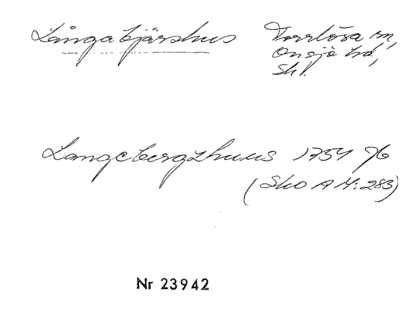 Långabjärshus Torrlösa sn,
Onsjö hd,
Skl.
Langebergzhuus 1754 %
(Sko A 14:283)
Nr 23942